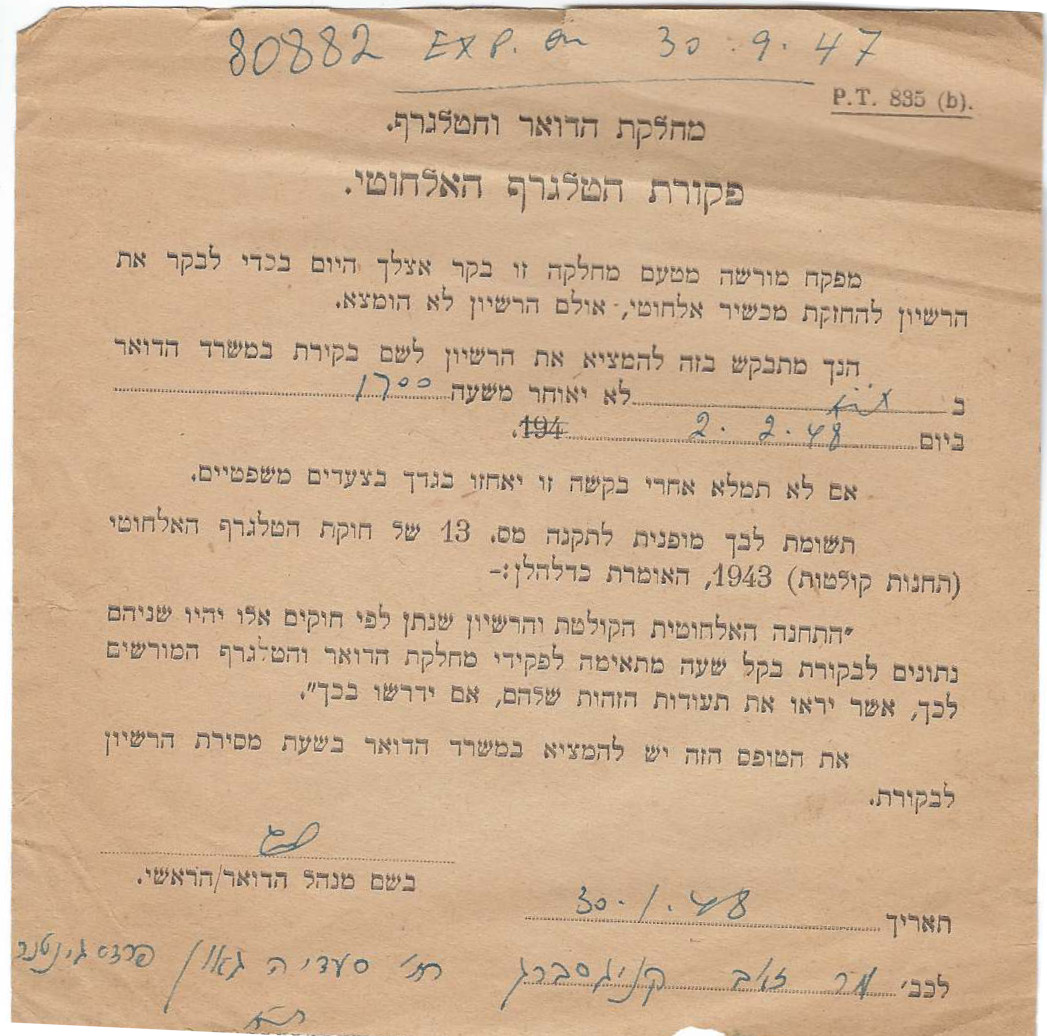 80882 EXP. on 30.9.47
P.T. 835 (b).
מחלקת הדואר והטלגרף.
פקודת הטלגרף האלחוטי.
מפקח מורשה מטעם מחלקה זו בקר אצלך היום בכדי לבקר את
הרשיון להחזקת מכשיר אלחוטי, אולם הרשיון לא הומצא.
הנך מתבקש בזה להמציא את הרשיון לשם בקירת במשרד הדואר
ב ת"א לא יאוחר משעה 1700
ביום 2.2.48 194.
אם לא תמלא אחרי בקשה זו יאחזו בגדך בצעדים משפטיים.
תשומת לבך מופנית לתקנה מס. 13 של חוקת הטלגרף האלחוטי
(תחנות קולטות) 1943, האומרת כדלהלן:-
"התחנה האלחוטית הקולטת והרשיון שנתן לפי חוקים אלו יהיו שניהם
נתונים לבקורת בקל שעה מתאימה לפקידי מחלקת הדואר והטלגרף המורשים
לכך, אשר יראו את תעודות הזהות שלהם, אם ידרשו בכך".
את הטופס הזה יש להמציא במשרד הדואר בשעת מסירת הרשיון
לבקורת.
בשם מנהל הדואר/הראשי.
תאריך 30.1.48
לכב' מר זאב קניגסברג רח' סעדיה גאון פרדס גינטר
ת"א